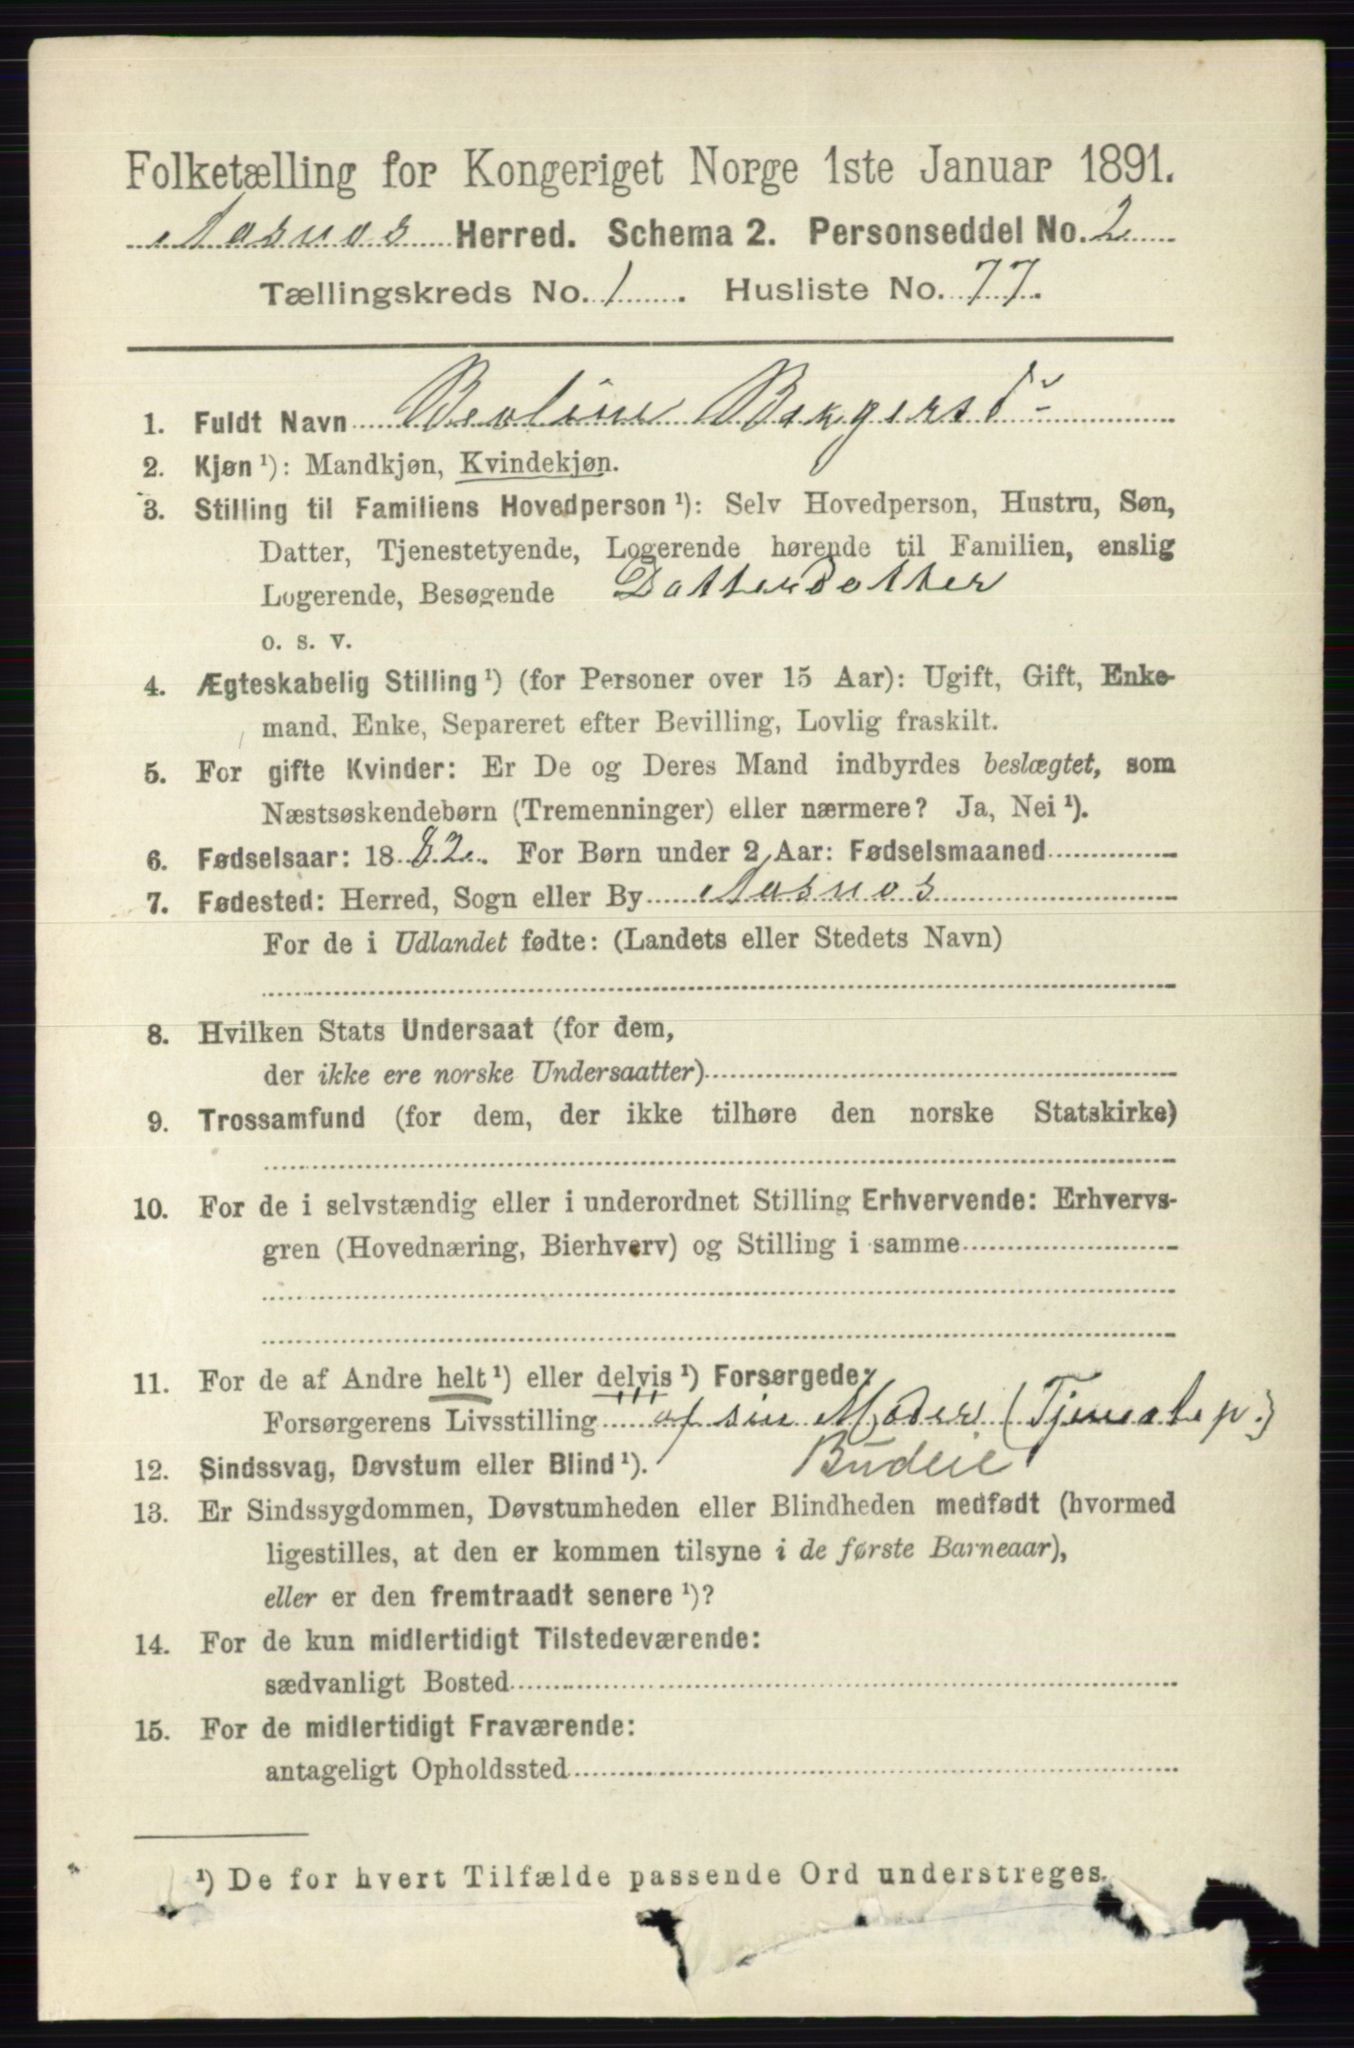 Folketælling for Kongeriget Norge 1ste Januar 1891.
Aasnes Herred. Schema 2. Personseddel No. 2
Tællingskreds No. 1. Husliste No. 77.
1. Fuldt Navn Beoline Birgersdr
2. Kjøn ¹): Mandkjøn, Kvindekjøn.
3. Stilling til Familiens Hovedperson ¹): Selv Hovedperson, Hustru, Søn,
Datter, Tjenestetyende, Logerende hørende til Familien, enslig
Logerende, Besøgende Datterdatter
o. s. v.
4. Ægteskabelig Stilling ¹) (for Personer over 15 Aar): Ugift, Gift, Enke-
mand, Enke, Separeret efter Bevilling, Lovlig fraskilt.
5. For gifte Kvinder: Er De og Deres Mand indbyrdes beslægtet, som
Næstsøskendebørn (Tremenninger) eller nærmere? Ja, Nei ¹).
6. Fødselsaar: 1882. For Børn under 2 Aar: Fødselsmaaned
7. Fødested: Herred, Sogn eller By Aasnes
For de i Udlandet fødte: (Landets eller Stedets Navn)
8. Hvilken Stats Undersaat (for dem,
der ikke ere norske Undersaatter)
9. Trossamfund (for dem, der ikke tilhøre den norske Statskirke)
10. For de i selvstændig eller i underordnet Stilling Erhvervende: Erhvervs-
gren (Hovednæring, Bierhverv) og Stilling i samme
11. For de af Andre helt ¹) eller delvis ¹) Forsørgede:
Forsørgerens Livsstilling af sin Moder (Tjenestep.)
12. Sindssvag, Døvstum eller Blind ¹). Budeie
13. Er Sindssygdommen, Døvstumheden eller Blindheden medfødt (hvormed
ligestilles, at den er kommen tilsyne i de første Barneaar),
eller er den fremtraadt senere ¹)?
14. For de kun midlertidigt Tilstedeværende:
sædvanligt Bosted
15. For de midlertidigt Fraværende:
antageligt Opholdssted
¹) De for hvert Tilfælde passende Ord understreges.